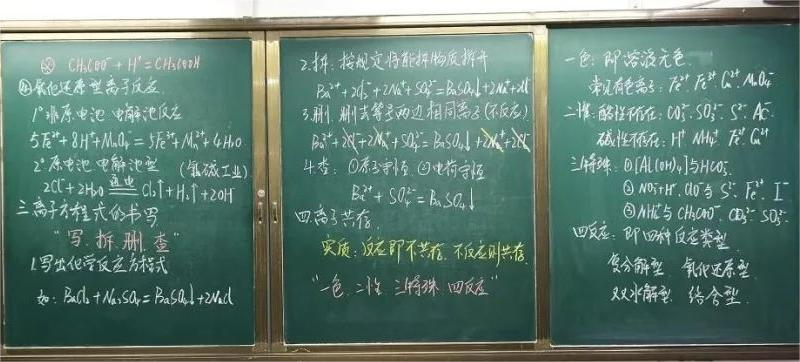 ⊗ CH₃COO⁻ + H⁺ = CH₃COOH
④氧化还原型离子反应
1°非原电池 电解池反应
5Fe²⁺ + 8H⁺ + MnO₄⁻ = 5Fe³⁺ + Mn²⁺ + 4H₂O
2°原电池 电解池型 (氯碱工业)
2Cl⁻ + 2H₂O 通电 Cl₂↑ + H₂↑ + 2OH⁻
三.离子方程式的书写
"写.拆.删.查"
1.写出化学反应方程式
如: BaCl₂ + Na₂SO₄ = BaSO₄↓ + 2NaCl
2.拆: 按规定将能拆物质拆开
Ba²⁺ + 2Cl⁻ + 2Na⁺ + SO₄²⁻ = BaSO₄↓ + 2Na⁺ + 2Cl⁻
3.删 删去等号两边相同离子(不反应)
Ba²⁺ + 2Cl⁻ + 2Na⁺ + SO₄²⁻ = BaSO₄↓ + 2Na⁺ + 2Cl⁻
4.查: ①原子守恒 ②电荷守恒
Ba²⁺ + SO₄²⁻ = BaSO₄↓
四.离子共存
实质: 反应即不共存. 不反应则共存.
"一色. 二性. 三特殊. 四反应"
一色: 即溶液无色.
常见有色离子: Fe²⁺ Fe³⁺ Cu²⁺ MnO₄⁻
二性: 酸性不存在: CO₃²⁻ SO₃²⁻ S²⁻ Ac⁻
碱性不存在: H⁺ NH₄⁺ Fe²⁺ Cu²⁺
三特殊: ①[Al(OH)₄]⁻与HCO₃⁻
②NO₃⁻+H⁺. ClO⁻与S²⁻ Fe²⁺ I⁻
③NH₄⁺与CH₃COO⁻ CO₃²⁻ SO₃²⁻
四反应: 即四种反应类型
复分解型 氧化还原型
双水解型 络合型